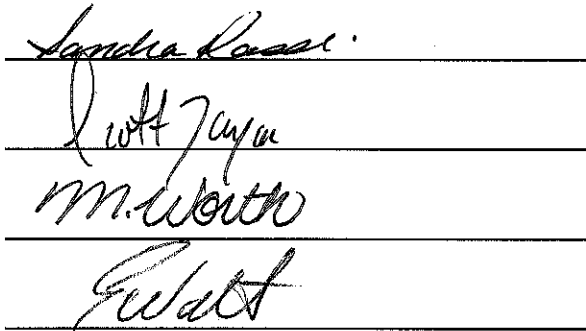 Sandra Rossi.
Scott Taylor
M. Worth